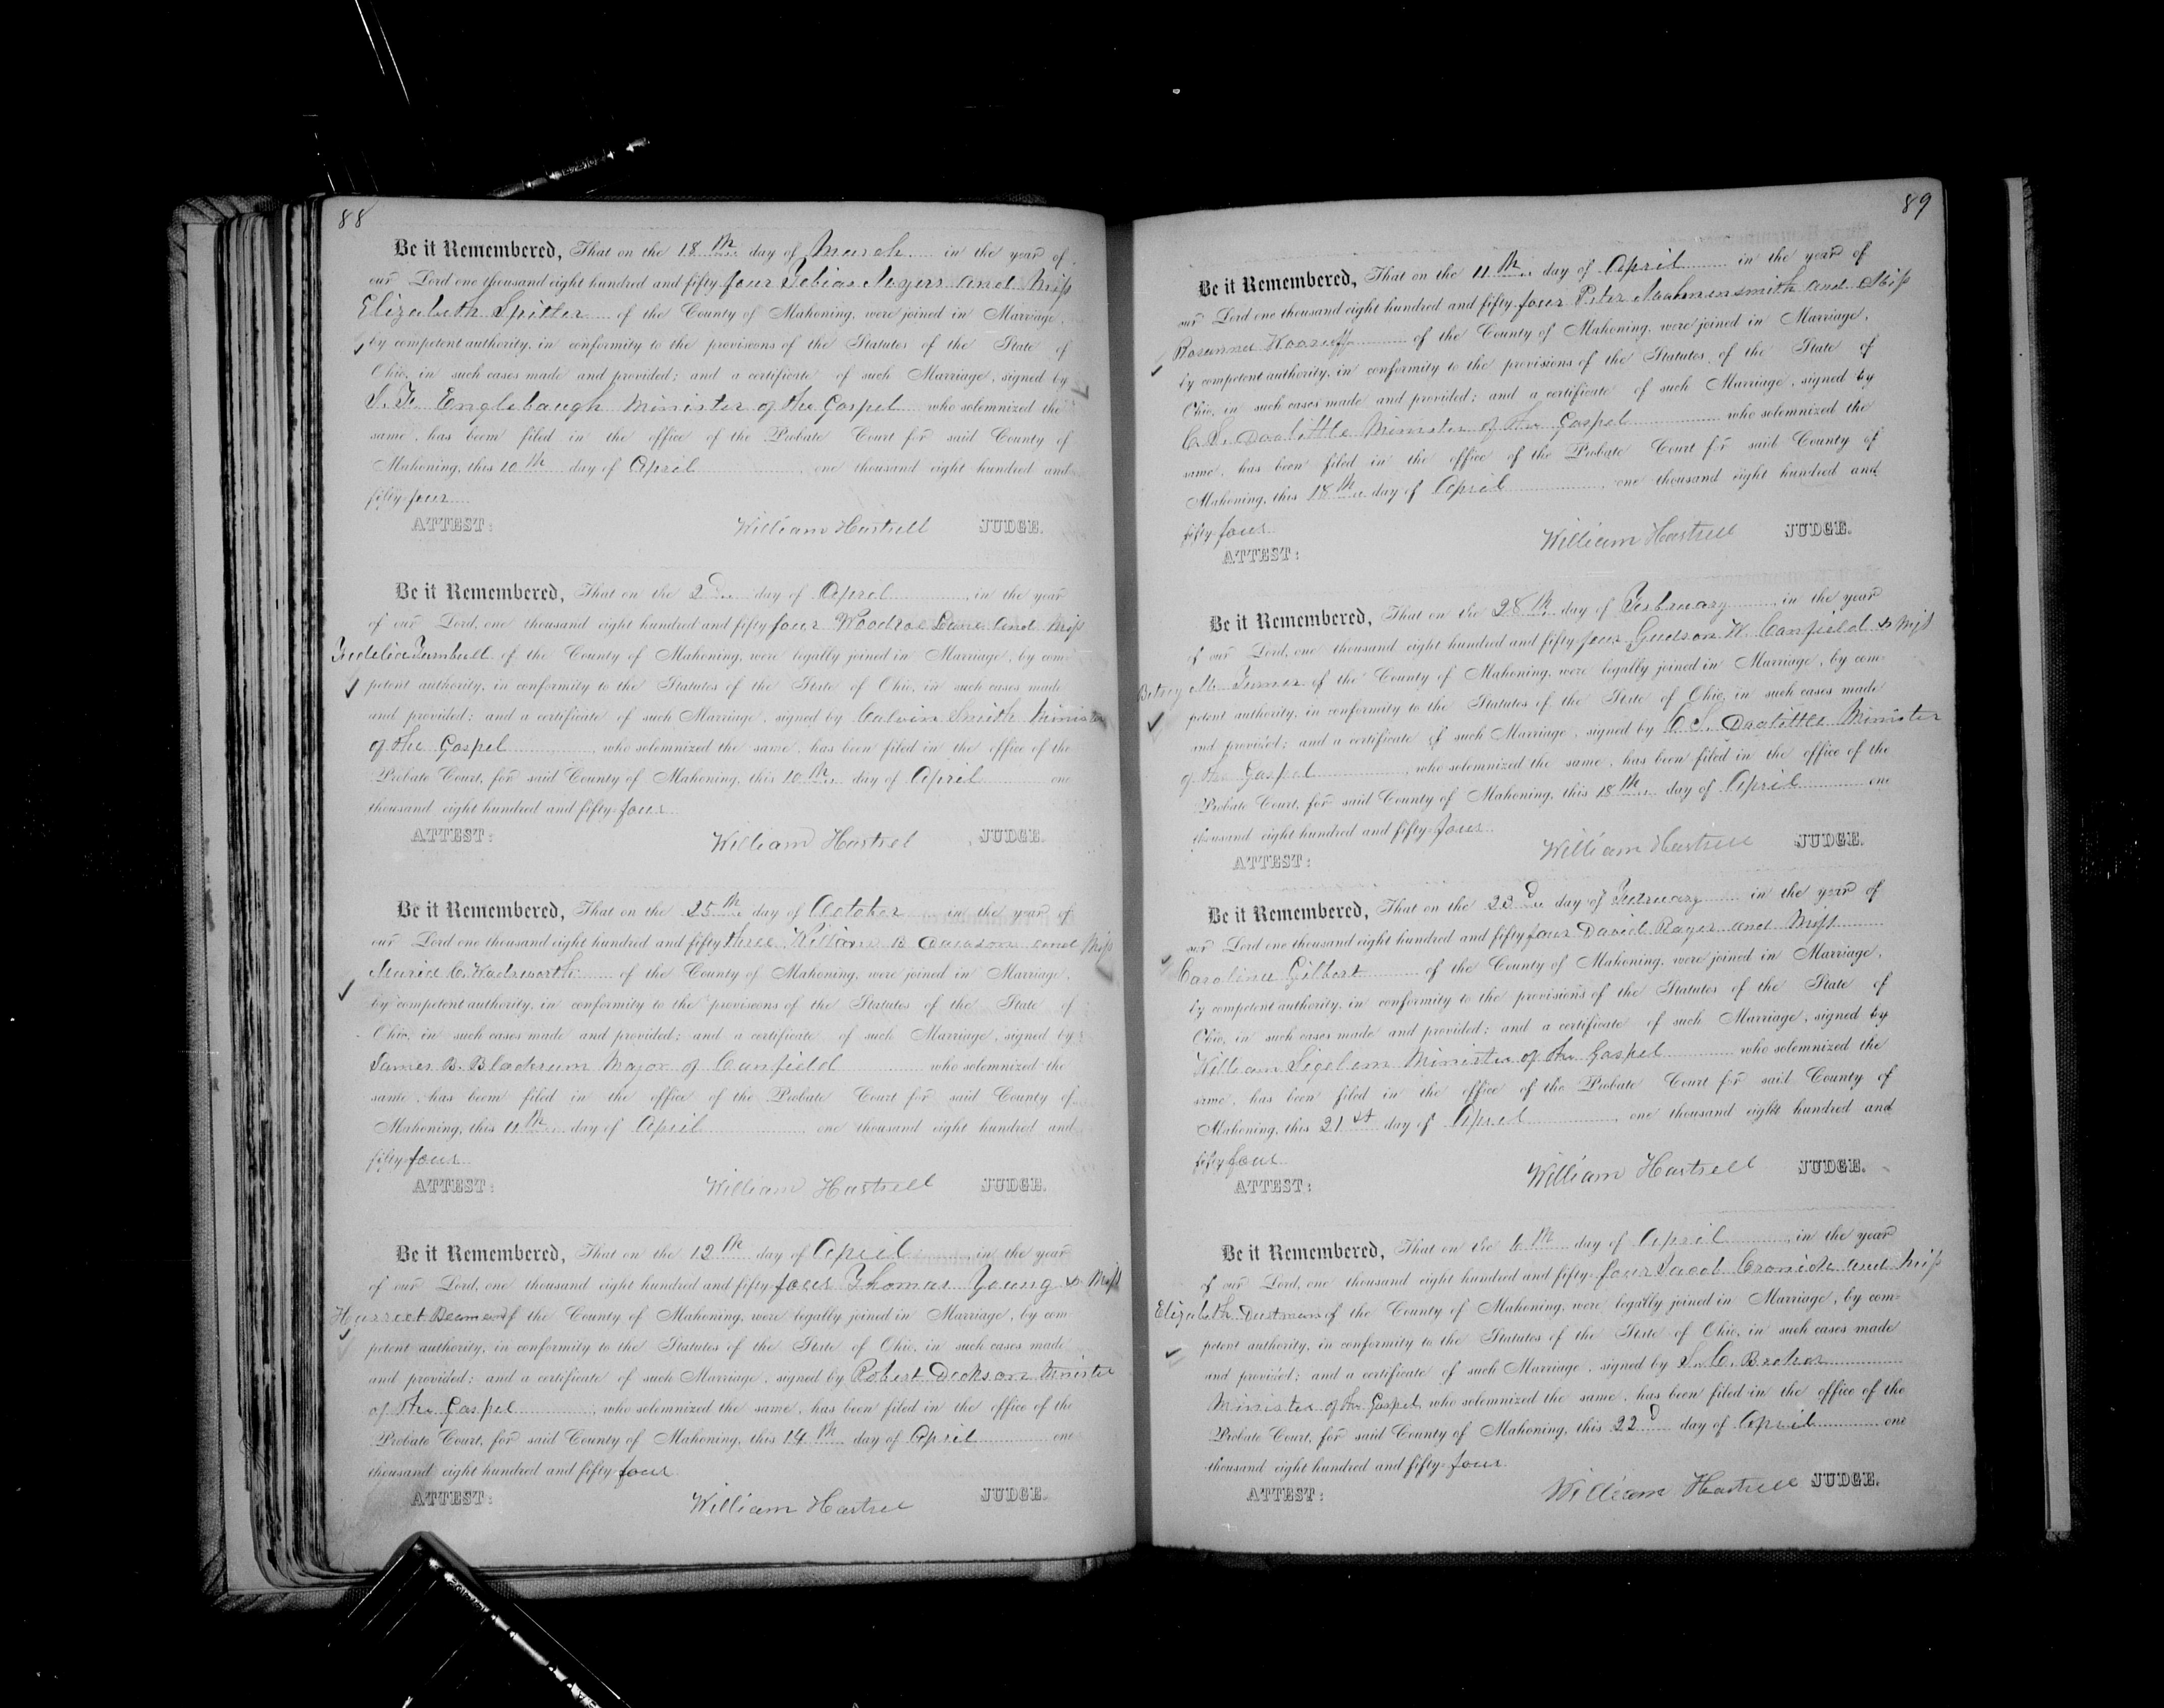 88
Be it Remembered, That on the 18th day of March in the year of
our Lord one thousand eight hundred and fifty four Tobias Moyers and Miss
Elizabeth Spitler of the County of Mahoning, were joined in Marriage,
by competent authority, in conformity to the provisions of the Statutes of the State of
Ohio, in such cases made and provided; and a certificate of such Marriage, signed by
Englebaugh Minister of the Gospel who solemnized the
same, has been filed in the office of the Probate Court for said County of
Mahoning, this 10th day of April one thousand eight hundred and
fifty four
ATTEST: William Hartsell JUDGE.
Be it Remembered, That on the 2d day of April in the year
of our Lord, one thousand eight hundred and fifty four and Miss
Turnbull of the County of Mahoning, were legally joined in Marriage, by com
petent authority, in conformity to the Statutes of the State of Ohio, in such cases made
and provided; and a certificate of such Marriage, signed by Calvin Smith Minister
of the Gospel who solemnized the same, has been filed in the office of the
Probate Court, for said County of Mahoning, this 10th day of April one
thousand eight hundred and fifty four
ATTEST: William Hartsel JUDGE.
Be it Remembered, That on the 25th day of October in the year of
our Lord one thousand eight hundred and fifty three William B and Miss
C. Wadsworth of the County of Mahoning, were joined in Marriage,
by competent authority, in conformity to the provisions of the Statutes of the State of
Ohio, in such cases made and provided; and a certificate of such Marriage, signed by
James B. Blackrum Mayor of Canfield who solemnized the
same, has been filed in the office of the Probate Court for said County of
Mahoning, this 11th day of April one thousand eight hundred and
fifty four
ATTEST: William Hartsell JUDGE.
Be it Remembered, That on the 12th day of April in the year
of our Lord, one thousand eight hundred and fifty four Thomas Young & Miss
Harriet of the County of Mahoning, were legally joined in Marriage, by com
petent authority, in conformity to the Statutes of the State of Ohio, in such cases made
and provided; and a certificate of such Marriage, signed by Robert Dickson Minister
of the Gospel who solemnized the same, has been filed in the office of the
Probate Court, for said County of Mahoning, this 14th day of April one
thousand eight hundred and fifty four
ATTEST: William Hartsel JUDGE.
89
Be it Remembered, That on the 11th day of April in the year of
our Lord one thousand eight hundred and fifty four Peter and Miss
Rosanna of the County of Mahoning, were joined in Marriage,
by competent authority, in conformity to the provisions of the Statutes of the State of
Ohio, in such cases made and provided; and a certificate of such Marriage, signed by
C. S. Doolittle Minister of the Gospel who solemnized the
same, has been filed in the office of the Probate Court for said County of
Mahoning, this 18th day of April one thousand eight hundred and
fifty four
ATTEST: William Hartsell JUDGE.
Be it Remembered, That on the 28th day of February in the year
of our Lord, one thousand eight hundred and fifty four Judson W. Canfield & Miss
Betsey M. Turner of the County of Mahoning, were legally joined in Marriage, by com-
petent authority, in conformity to the Statutes of the State of Ohio, in such cases made
and provided; and a certificate of such Marriage, signed by C. S. Doolittle Minister
of the Gospel who solemnized the same, has been filed in the office of the
Probate Court, for said County of Mahoning, this 18th day of April one
thousand eight hundred and fifty four
ATTEST: William Hartsell JUDGE.
Be it Remembered, That on the 23d day of February in the year of
our Lord one thousand eight hundred and fifty four David Rayer and Miss
Caroline Gilbert of the County of Mahoning, were joined in Marriage,
by competent authority, in conformity to the provisions of the Statutes of the State of
Ohio, in such cases made and provided; and a certificate of such Marriage, signed by
William Sigelem Minister of the Gospel who solemnized the
same, has been filed in the office of the Probate Court for said County of
Mahoning, this 21st day of April one thousand eight hundred and
fifty four
ATTEST: William Hartsell JUDGE.
Be it Remembered, That on the 6th day of April in the year
of our Lord, one thousand eight hundred and fifty four Jacob Cronick and Miss
Elizabeth Dustman of the County of Mahoning, were legally joined in Marriage, by com-
petent authority, in conformity to the Statutes of the State of Ohio, in such cases made
and provided; and a certificate of such Marriage, signed by S. C. Broker
Minister of the Gospel who solemnized the same, has been filed in the office of the
Probate Court, for said County of Mahoning, this 22d day of April one
thousand eight hundred and fifty four
ATTEST: William Hartsell JUDGE.